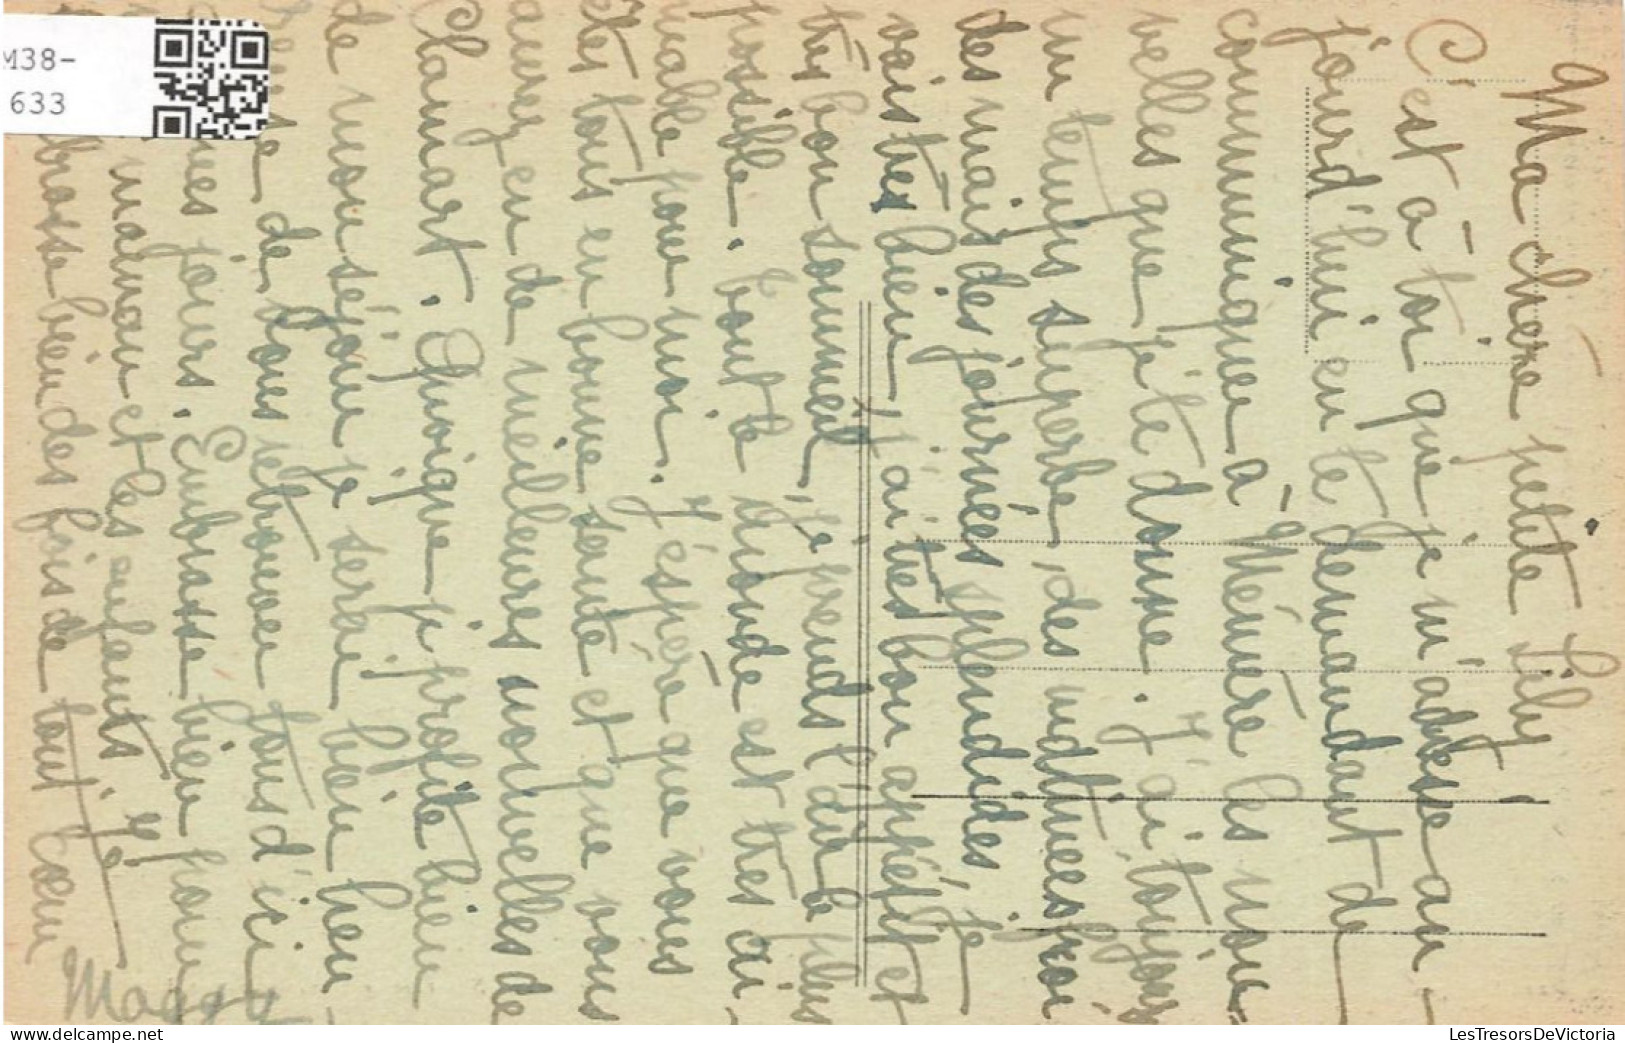 Ma chère petite Lily
C'est à toi que je m'adresse au-
jourd'hui en te demandant de
communiquer à Mémère les nou-
velles que je te donne. J'ai toujours
un temps superbe, des matinées froi
des mais des journées splendides je
vais très bien, j'ai très bon appétit et
très bon sommeil, je prends l'air le plus
possible. Tout le monde est très ai-
mable pour moi. J'espère que vous
êtes tous en bonne santé et que vous
aurez eu de meilleures nouvelles de
Clamart. Quoique je profite bien
de mon séjour je serai bien heu-
reuse de vous retrouver tous d'ici
jours. Embrasse bien pour
maman et les enfants. Je
brasse bien des fois de tout cœur
Maggy
M38-
633
LesTresorsDeVictoria
www.delcampe.net